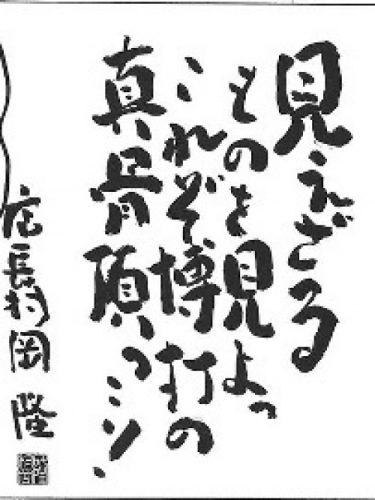 見えざる
ものを見よっ
これぞ博打の
真骨頂っミソ!
店長村岡 隆